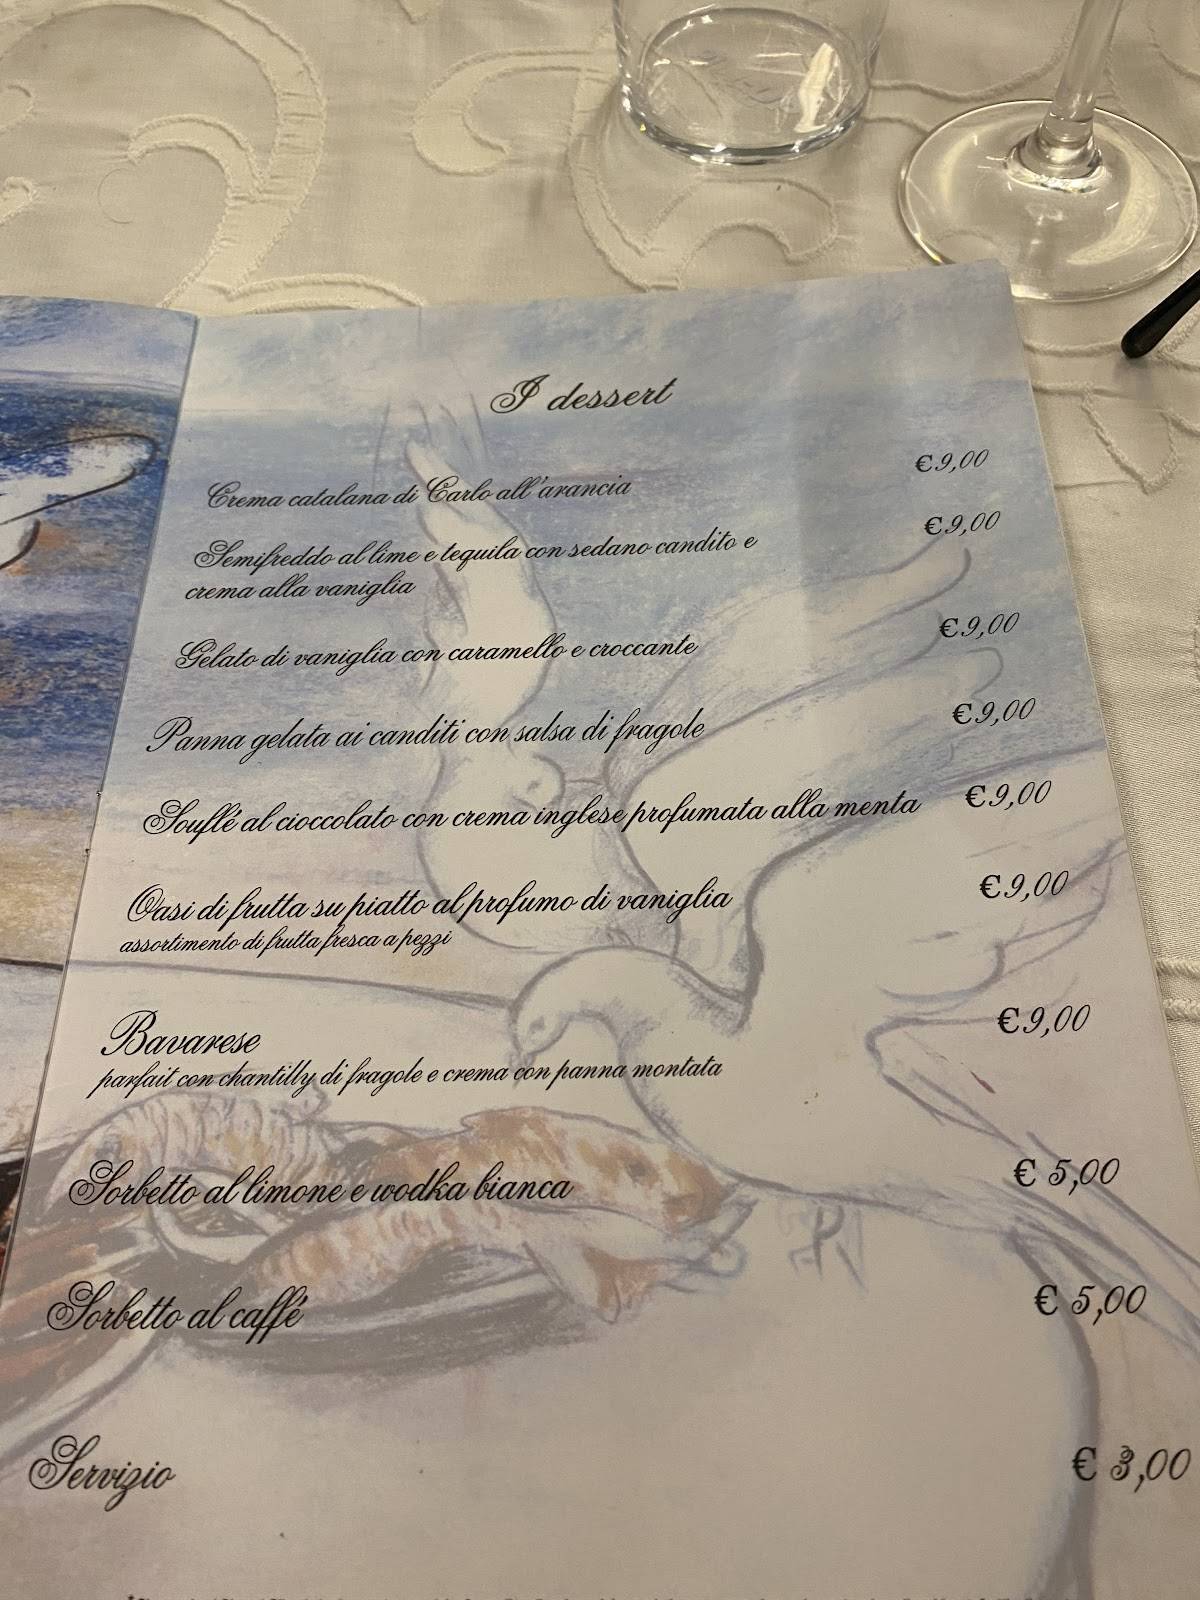 I dessert
Crema catalana di Carlo all'arancia €9,00
Semifreddo al lime e tequila con sedano candito e €9,00
crema alla vaniglia
Gelato di vaniglia con caramello e croccante €9,00
Panna gelata ai canditi con salsa di fragole €9,00
Souflé al cioccolato con crema inglese profumata alla menta €9,00
Oasi di frutta su piatto al profumo di vaniglia €9,00
assortimento di frutta fresca a pezzi
Bavarese €9,00
parfait con chantilly di fragole e crema con panna montata
Sorbetto al limone e wodka bianca € 5,00
Sorbetto al caffé € 5,00
Servizio € 3,00